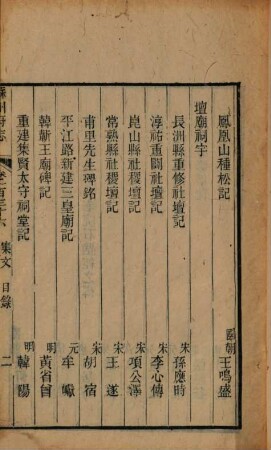 鳳凰山種松記 國朝王鳴盛
壇廟祠宇
長洲縣重修社壇記 宋孫應時
淳祐重闢社壇記 宋李心傳
崑山縣社稷壇記 宋項公澤
常熟縣社稷壇記 宋王遂
甫里先生碑銘 宋胡宿
平江路新建三皇廟記 元牟巘
韓蘄王廟碑記 明黃省曾
重建集賢太守祠堂記 明韓陽
蘇州府志 卷一百三十六 集文 目錄 二